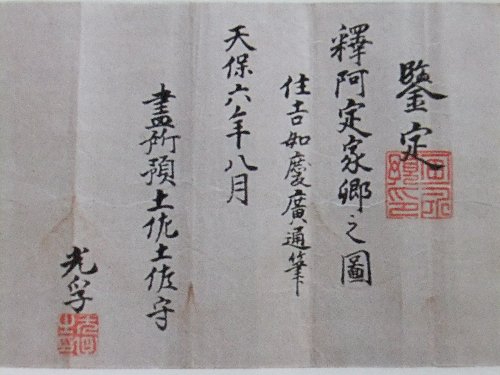 鑒定
釋阿定家卿之圖
住吉如慶廣通筆
天保六年八月
畫所預土佐土佐守
光孚